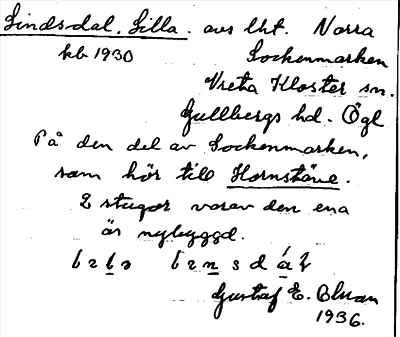 Lindsdal, Lilla. avs lht. Norra
kb 1930 Sockenmarken
Vreta Kloster sn.
Gullbergs hd. Ögl
På den del av Sockenmarken,
som hör till Hornstäve.
2 stugor varav den ena
är nybyggd.
Gustaf E. Olsson
1936.